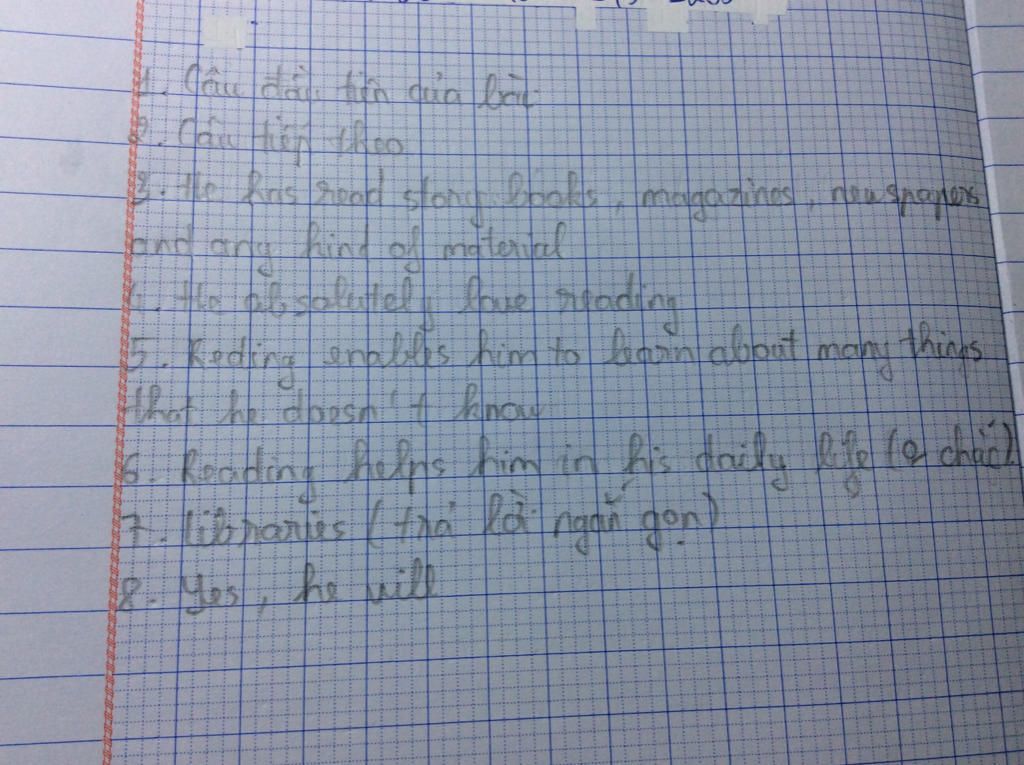 1. Câu đầu tiên của bài
2. Câu tiếp theo
3. He has read story books, magazines, newspapers
and any kind of material
4. He absolutely love reading
5. Reding enables him to learn about many things
that he doesn't know
6. Reading helps him in his daily life (0 chắc)
7. libraries (trả lời ngắn gọn)
8. Yes, he will